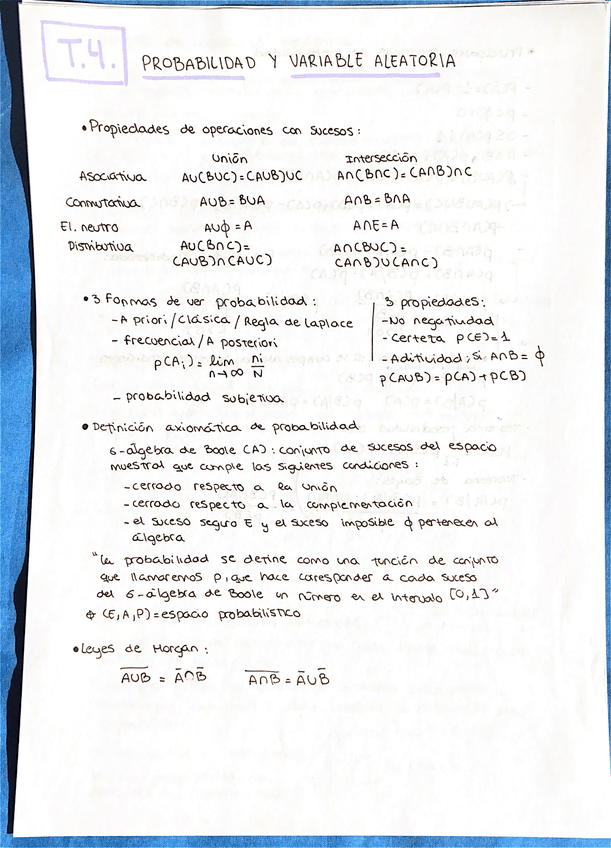 T.4. PROBABILIDAD Y VARIABLE ALEATORIA
• Propiedades de operaciones con sucesos:
Unión Intersección
Asociativa AU(BUC)=(AUB)UC A∩(B∩C)=(A∩B)∩C
Conmutativa AUB=BUA A∩B=B∩A
El. neutro AUϕ=A A∩E=A
Distributiva AU(B∩C)= A∩(BUC)=
(AUB)∩(AUC) (A∩B)U(A∩C)
• 3 Formas de ver probabilidad:
- A priori/Clásica/Regla de Laplace
- frecuencial/A posteriori
p(Ai)= lim n→∞ ni/N
- probabilidad subjetiva
3 propiedades:
- No negatividad
- Certeza p(E)=1
- Aditividad; Si A∩B= ϕ
p(AUB)=p(A)+p(B)
• Definición axiomática de probabilidad
σ-álgebra de Boole (A): conjunto de sucesos del espacio
muestral que cumple las siguientes condiciones:
- cerrado respecto a la unión
- cerrado respecto a la complementación
- el suceso seguro E y el suceso imposible ϕ pertenecen al
álgebra
"la probabilidad se define como una función de conjunto
que llamaremos P, que hace corresponder a cada suceso
del σ-álgebra de Boole un número en el intervalo [0,1]"
(E,A,P)=espacio probabilístico
• Leyes de Morgan:
A̅U̅B̅ = A̅∩B̅ A̅∩̅B̅ = A̅UB̅